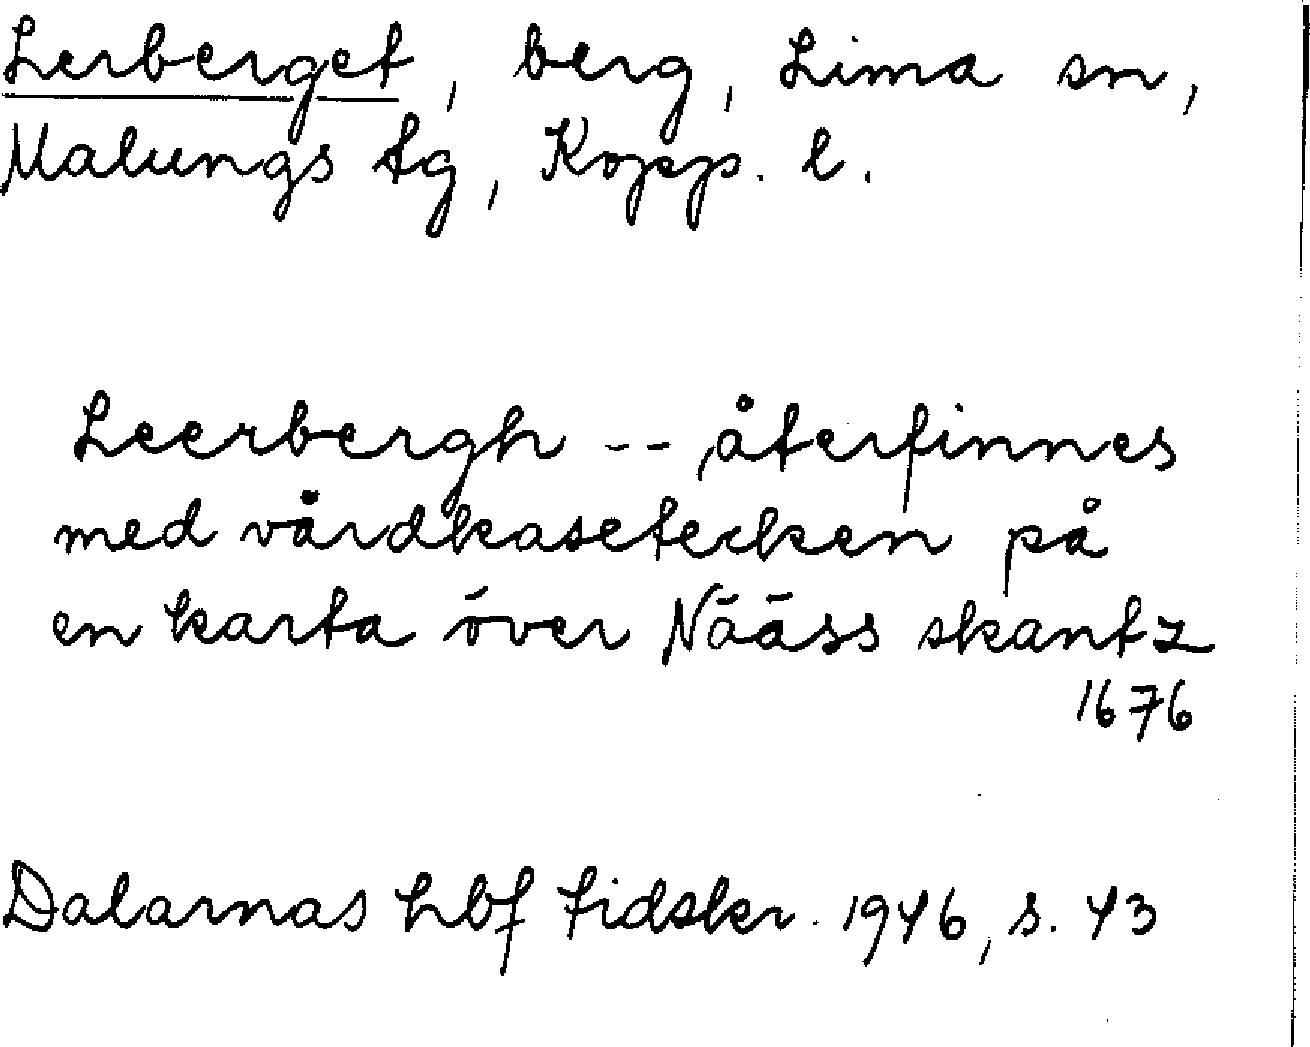 Lerberget, berg, Lima sn,
Malungs tg, Kopp. l.
Leerbergh -- återfinnes
med vårdkasetecken på
en karta över Nääss skantz
1676
Dalarnas hbf tidskr. 1946, s. 43